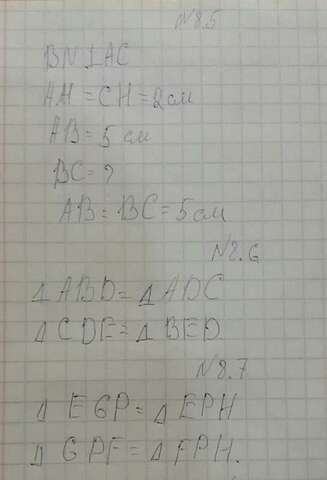 №8.5
BN⊥AC
AH = CH = 2 см
AB = 5 см
BC = ?
AB = BC = 5 см
№8.6
△ ABD = △ ADC
△ CDE = △ BED
№8.7
△ EGP = △ EPH
△ GPF = △ FPH.